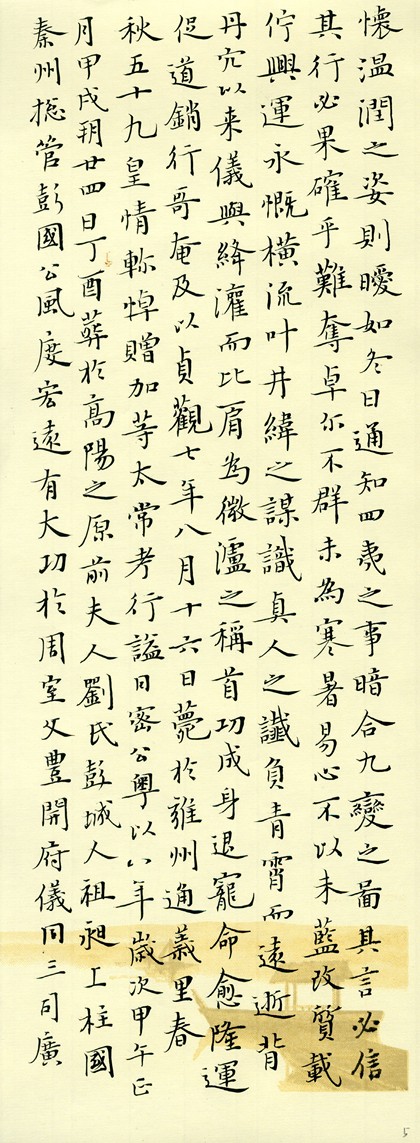 懷温潤之姿則曖如冬日通知四夷之事暗合九變之啚其言必信
其行必果確乎難奪卓尒不群未為寒暑易心不以未藍改質載
佇興運永慨橫流叶井緯之謀識真人之讖負青霄而遠逝背
丹穴以来儀與絳灌而比肩為微瀘之稱首功成身退寵命愈隆運
促道銷行哥奄及以貞觀七年八月十六日薨於雍州通義里春
秋五十九皇情軫悼贈加等太常考行謚曰密公粵以八年歲次甲午正
月甲戌朔廿四日丁酉葬於高陽之原前夫人劉氏彭城人祖昶上柱國
秦州揔管彭國公風度宏遠有大功於周室父豊開府儀同三司廣
5